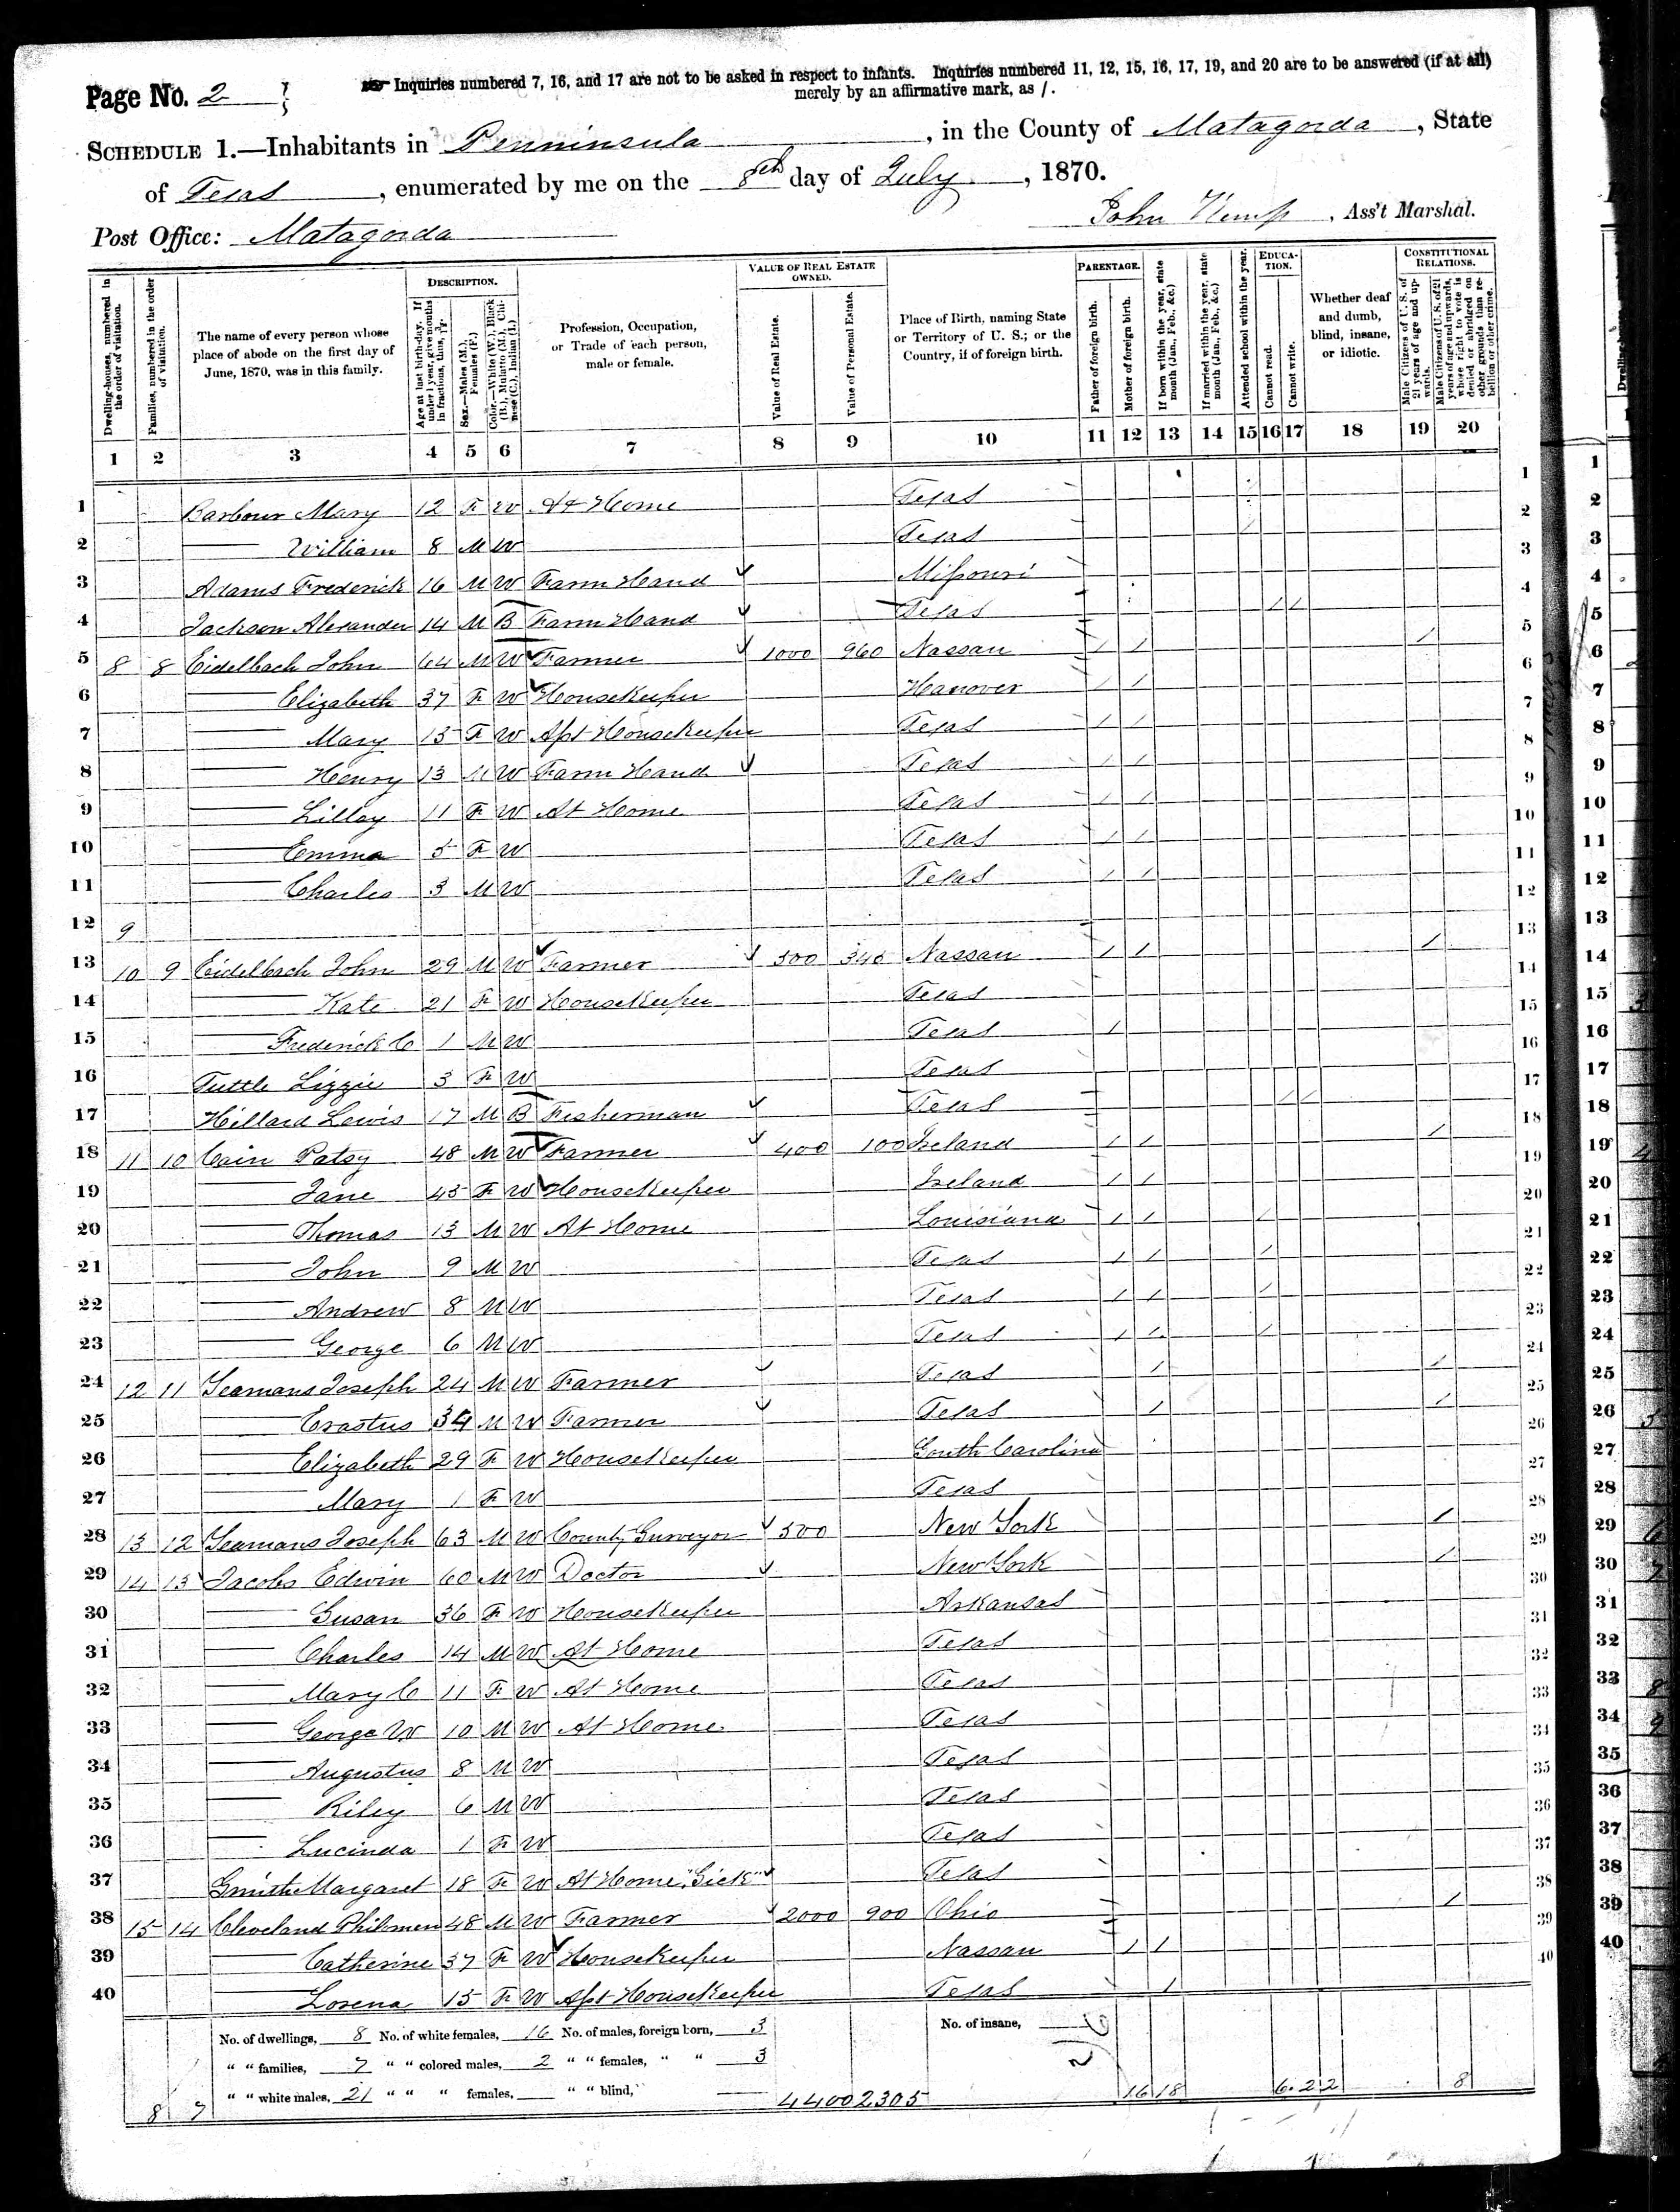 Page No. 2
Inquiries numbered 7, 16, and 17 are not to be asked in respect to infants. Inquiries numbered 11, 12, 15, 16, 17, 19, and 20 are to be answered (if at all)
merely by an affirmative mark, as /.
SCHEDULE 1.—Inhabitants in Penninsula, in the County of Matagorda, State
of Texas, enumerated by me on the 8th day of July, 1870.
Post Office: Matagorda
John Kemp, Ass't Marshal.
Dwelling-houses, numbered in the order of visitation.
Families, numbered in the order of visitation.
The name of every person whose place of abode on the first day of June, 1870, was in this family.
DESCRIPTION.
Age at last birth-day. If under 1 year, give months in fractions, thus, 3/12.
Sex.—Males (M.), Females (F.)
Color.—White (W.), Black (B.), Mulatto (M.), Chinese (C.), Indian (I.)
Profession, Occupation, or Trade of each person, male or female.
VALUE OF REAL ESTATE OWNED.
Value of Real Estate.
Value of Personal Estate.
Place of Birth, naming State or Territory of U. S.; or the Country, if of foreign birth.
PARENTAGE.
Father of foreign birth.
Mother of foreign birth.
If born within the year, state month (Jan., Feb., &c.)
If married within the year, state month (Jan., Feb., &c.)
Attended school within the year.
EDUCATION.
Cannot read.
Cannot write.
Whether deaf and dumb, blind, insane, or idiotic.
CONSTITUTIONAL RELATIONS.
Male Citizens of U. S. of 21 years of age and upwards.
Male Citizens of U. S. of 21 years of age and upwards, whose right to vote is denied or abridged on other grounds than rebellion or other crime.
1 2 3 4 5 6 7 8 9 10 11 12 13 14 15 16 17 18 19 20
1 Barbour Mary 12 F W At Home Texas 1
2 William 8 M W Texas 2
3 Adams Frederick 16 M W Farm Hand Missouri 3
4 Jackson Alexander 14 M B Farm Hand Texas / / 4
5 8 8 Eidelbach John 64 M W Farmer 1000 960 Nassau / / / 5
6 Elizabeth 37 F W Housekeeper Hanover / / 6
7 Mary 15 F W Asst Housekeeper Texas / / 7
8 Henry 13 M W Farm Hand Texas / / 8
9 Lillay 11 F W At Home Texas / / 9
10 Emma 5 F W Texas / / 10
11 Charles 3 M W Texas / / 11
12 9 12
13 10 9 Eidelbach John 29 M W Farmer 500 345 Nassau / / / 13
14 Kate 21 F W Housekeeper Texas 14
15 Frederick C 1 M W Texas / 15
16 Tuttle Lizzie 3 F W Texas 16
17 Hillard Lewis 17 M B Fisherman Texas / / 17
18 11 10 Cain Patsy 48 M W Farmer 400 100 Ireland / / / 18
19 Jane 45 F W Housekeeper Ireland / / 19
20 Thomas 13 M W At Home Louisiana / / / 20
21 John 9 M W Texas / / / 21
22 Andrew 8 M W Texas / / / 22
23 George 6 M W Texas / / / 23
24 12 11 Seamans Joseph 24 M W Farmer Texas / / 24
25 Erastus 34 M W Farmer Texas / / 25
26 Elizabeth 29 F W Housekeeper South Carolina 26
27 Mary 1 F W Texas 27
28 13 12 Seamans Joseph 63 M W County Surveyor 500 New York / 28
29 14 13 Jacobs Edwin 60 M W Doctor New York / 29
30 Susan 36 F W Housekeeper Arkansas 30
31 Charles 14 M W At Home Texas 31
32 Mary C 11 F W At Home Texas 32
33 George W 10 M W At Home Texas 33
34 Augustus 8 M W Texas 34
35 Riley 6 M W Texas 35
36 Lucinda 1 F W Texas 36
37 Smith Margaret 18 F W At Home "Sick" Texas 37
38 15 14 Cleveland Philomen 48 M W Farmer 2000 900 Ohio / 38
39 Catherine 37 F W Housekeeper Nassau / / 39
40 Lorena 15 F W Asst Housekeeper Texas / 40
No. of dwellings, 8 No. of white females, 16 No. of males, foreign born, 3 No. of insane,
" " families, 7 " " colored males, 2 " " females, " " 3
" " white males, 21 " " " females, " " blind,
8 7 4400 2305 16 18 6 2 2 8